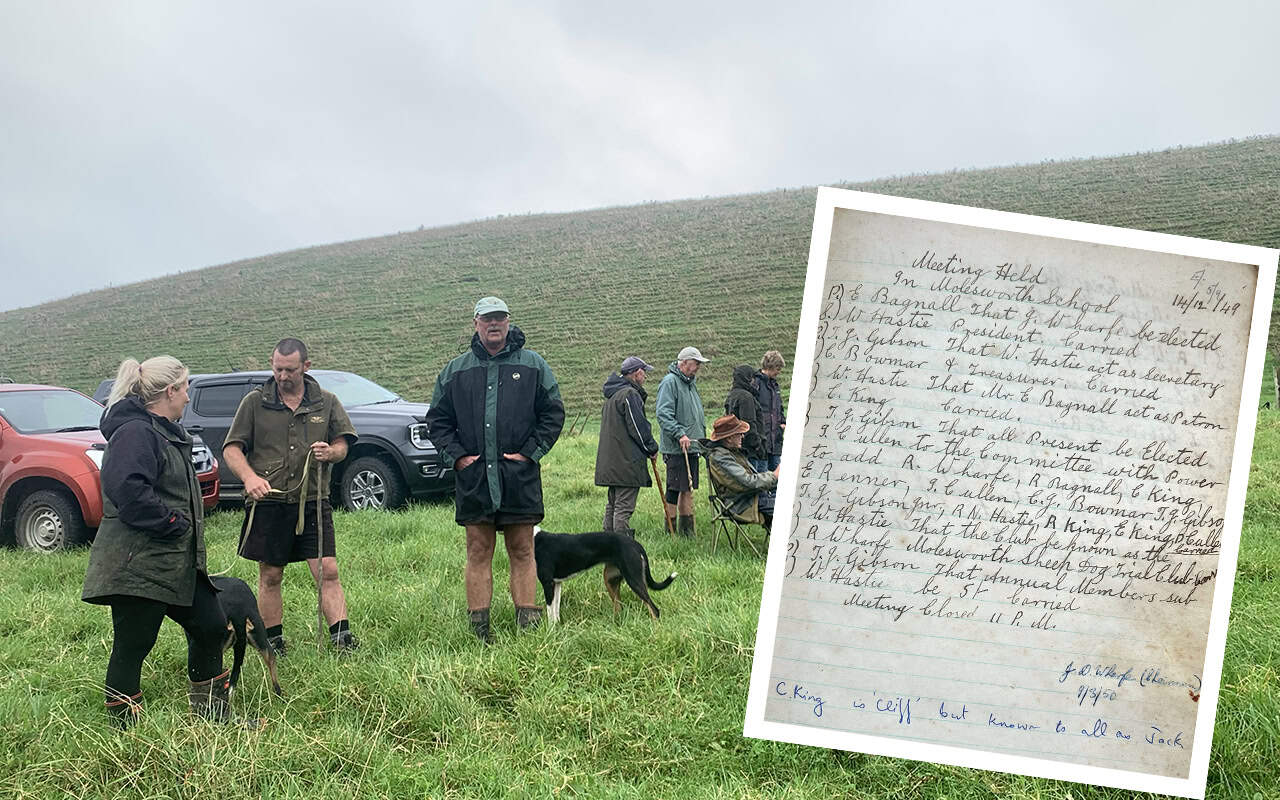 Meeting Held
In Molesworth School
14/12/49
P.) E Bagnall That J. Wharfe be Elected
S.) W Hastie President. Carried
T.J. Gibson That W. Hastie act as Secretary
E. Bowmar & Treasurer. Carried
W. Hastie That Mr. E Bagnall act as Patron
E. King Carried.
T.J. Gibson That all Present be Elected
J Cullen to the Committee with Power
to add R. Wharfe, R Bagnall, E King,
E Renner, J. Cullen, E.J. Bowmar T.J. Gibson
T.J. Gibson Jnr, R.N. Hastie, R King, E King D. Cullen
Carried
W. Hastie That the Club be known as the
R Wharfe Molesworth Sheep Dog Trial Club
T.J. Gibson That Annual Members sub
W. Hastie be 5/- Carried
Meeting Closed 11 P.M.
J D Wharfe (Chairman)
9/3/50
C. King is 'Cliff' but known to all as Jack